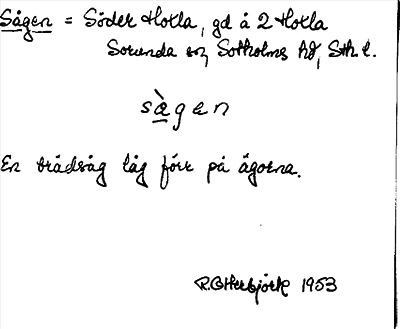 Sågen = Söder Hoxla, gd å 2 Hoxla
Sorunda sn, Sotholms hd, Sth. l.
sàgen
En brädsåg låg förr på ägorna.
1953